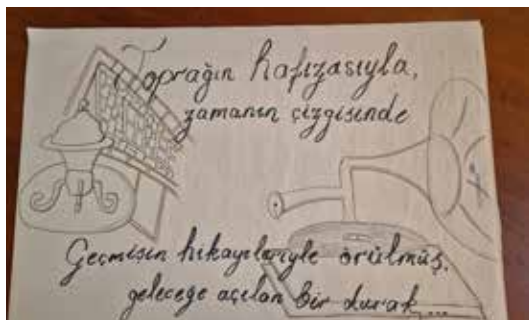 Toprağın hafızasıyla,
zamanın çizgisinde
Geçmişin hikayeleriyle örülmüş,
geleceğe açılan bir durak...